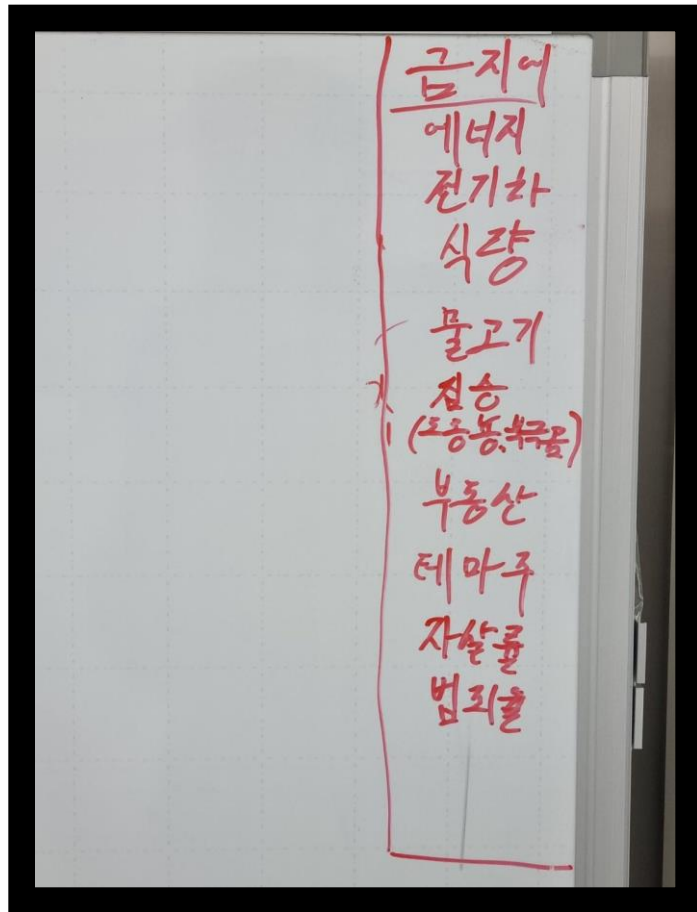 금지어
에너지
전기차
식량
물고기
짐승
(도롱뇽,북극곰)
부동산
테마주
자살률
범죄율